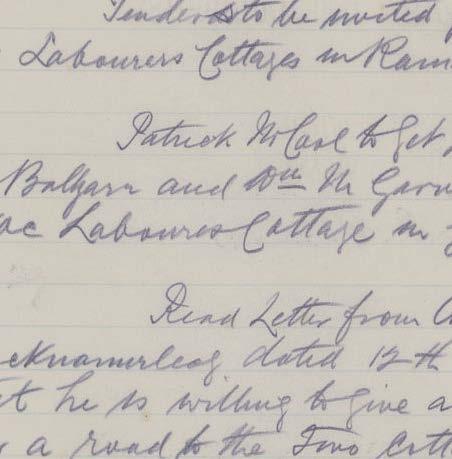 Tenders to be invited
Labourers Cottages in Ram
Patrick McCool to Get
Balgara and Wm Mc Garv
Laboures Cottage in
Read Letter from
dated 12th
he is willing to give a
a road to the Two Cott